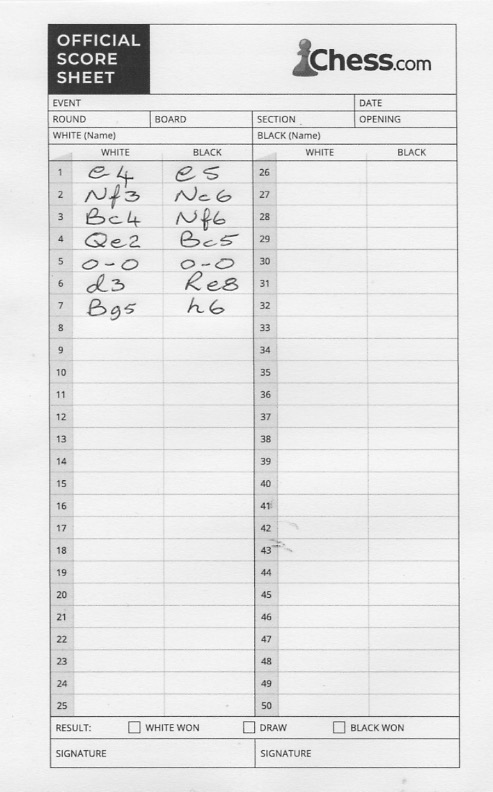 OFFICIAL
SCORE
SHEET
Chess.com
EVENT DATE
ROUND BOARD SECTION OPENING
WHITE (Name) BLACK (Name)
WHITE BLACK WHITE BLACK
1 e4 e5 26
2 Nf3 Nc6 27
3 Bc4 Nf6 28
4 Qe2 Bc5 29
5 0-0 0-0 30
6 d3 Re8 31
7 Bg5 h6 32
8 33
9 34
10 35
11 36
12 37
13 38
14 39
15 40
16 41
17 42
18 43
19 44
20 45
21 46
22 47
23 48
24 49
25 50
RESULT: WHITE WON DRAW BLACK WON
SIGNATURE SIGNATURE